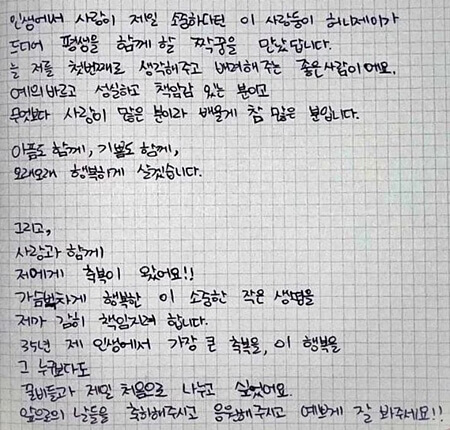 인생에서 사랑이 제일 소중하다던 이 사랑둥이 허니제이가
드디어 평생을 함께 할 짝꿍을 만났답니다.
늘 저를 첫번째로 생각해주고 배려해주는 좋은사람이에요.
예의바르고 성실하고 책임감 있는 분이고
무엇보다 사랑이 많은 분이라 배울게 참 많은 분입니다.
아픔도 함께, 기쁨도 함께,
오래오래 행복하게 살겠습니다.
그리고,
사랑과 함께
저에게 축복이 왔어요!!
가슴벅차게 행복한 이 소중한 작은 생명을
제가 감히 책임지려 합니다.
35년 제 인생에서 가장 큰 축복을, 이 행복을
그 누구보다도
꿀비들과 제일 처음으로 나누고 싶었어요.
앞으로의 날들을 축하해주시고 응원해주시고 예쁘게 잘 봐주세요!!